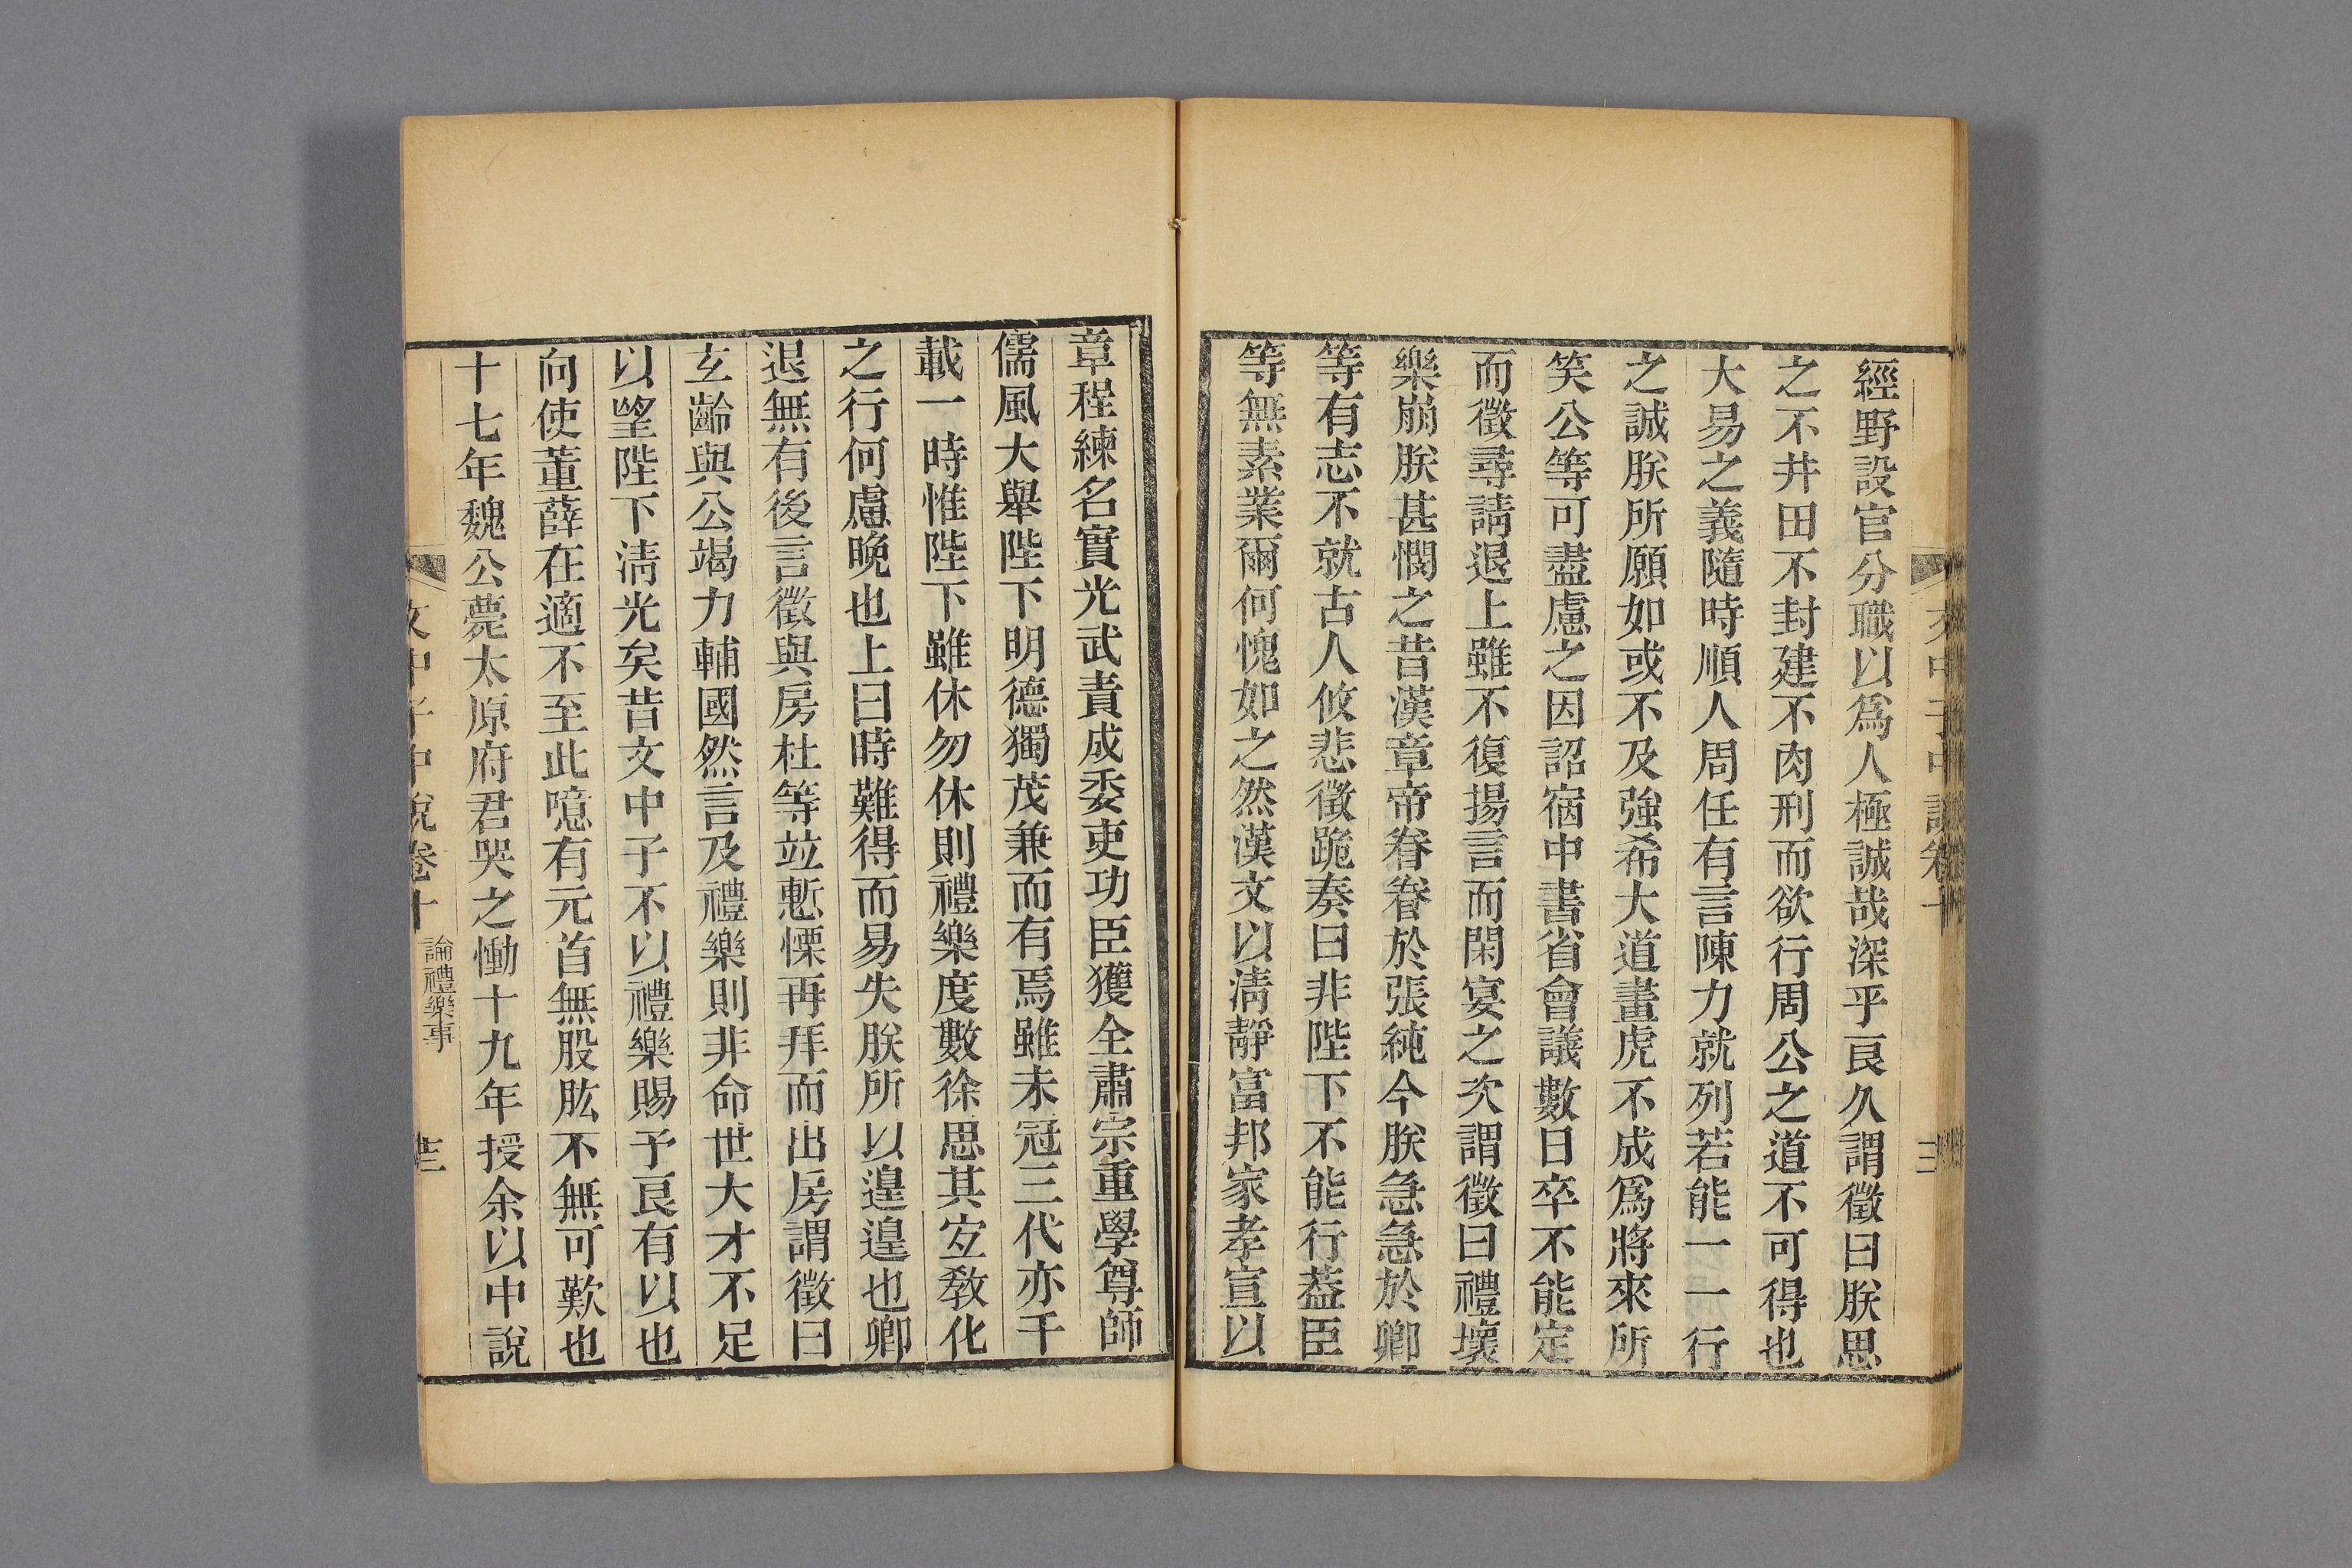 經野設官分職以爲人極誠哉深乎良久謂徵曰朕思
之不井田不封建不肉刑而欲行周公之道不可得也
大易之義隨時順人周任有言陳力就列若能一一行
之誠朕所願如或不及強希大道畫虎不成爲將來所
笑公等可盡慮之因詔宿中書省會議數日卒不能定
而徵尋請退上雖不復揚言而閑宴之次謂徵曰禮壞
樂崩朕甚憫之昔漢章帝眷眷於張純今朕急急於卿
等有志不就古人攸悲徵跪奏曰非陛下不能行葢臣
等無素業爾何愧如之然漢文以淸靜富邦家孝宣以
章程練名實光武責成委吏功臣獲全肅宗重學尊師
儒風大舉陛下明德獨茂兼而有焉雖未冠三代亦千
載一時惟陛下雖休勿休則禮樂度數徐思其宐敎化
之行何慮晚也上曰時難得而易失朕所以遑遑也卿
退無有後言徵與房杜等竝慙慄再拜而出房謂徵曰
玄齡與公竭力輔國然言及禮樂則非命世大才不足
以望陛下淸光矣昔文中子不以禮樂賜予良有以也
向使董薛在適不至此噫有元首無股肱不無可歎也
十七年魏公薨太原府君哭之慟十九年授余以中說
文中子中說卷十 論禮樂事